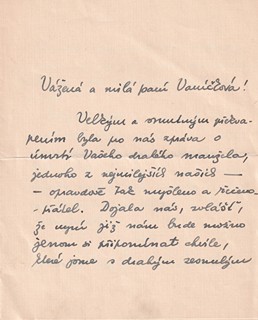 Vážená a milá paní Vaníčková!
Velkým a smutným překva-
pením byla pro nás zpráva o
úmrtí Vašeho drahého manžela,
jednoho z nejmilejších našich —
— opravdově tak myšleno a řečeno
— přátel. Dojala nás, zvlášť,
že nyní již nám bude možno
jenom si připomínat chvíle,
které jsme s drahým zesnulým